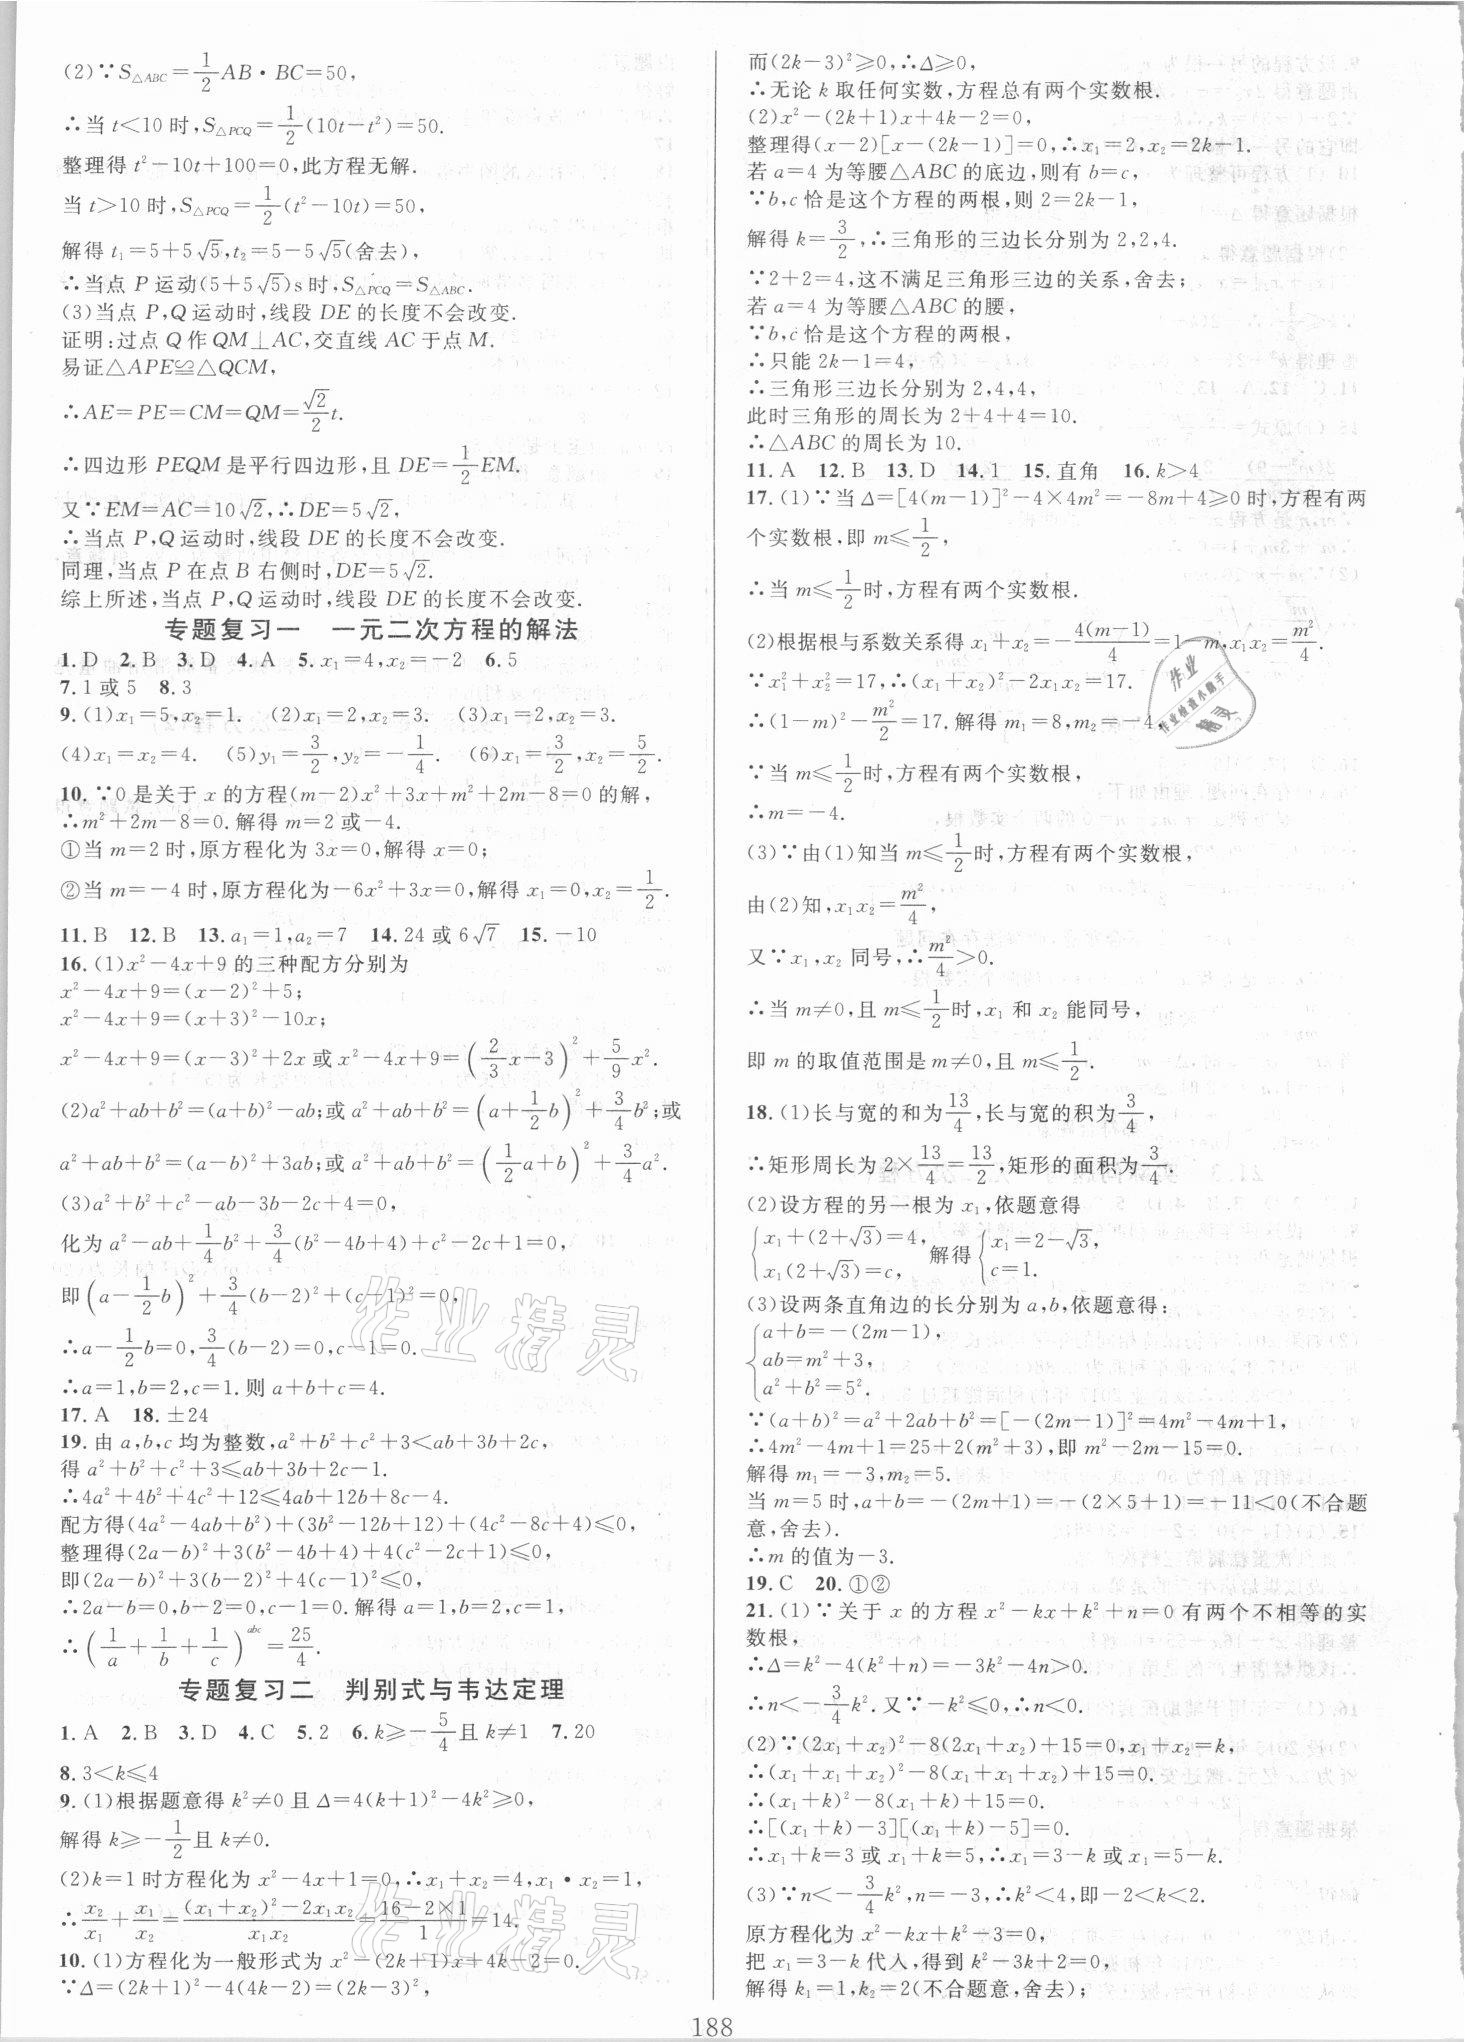 (2)∵S△ABC=1/2 AB·BC=50,
∴当 t<10 时,S△PCQ=1/2(10t-t²)=50.
整理得 t²-10t+100=0,此方程无解.
当 t>10 时,S△PCQ=1/2(t²-10t)=50,
解得 t₁=5+5√5,t₂=5-5√5(舍去),
∴当点 P 运动(5+5√5)s 时,S△PCQ=S△ABC.
(3)当点 P,Q 运动时,线段 DE 的长度不会改变.
证明:过点 Q 作 QM⊥AC,交直线 AC 于点 M.
易证△APE≌△QCM,
∴AE=PE=CM=QM=√2/2 t.
∴四边形 PEQM 是平行四边形,且 DE=1/2 EM.
又∵EM=AC=10√2,∴DE=5√2.
∴当点 P,Q 运动时,线段 DE 的长度不会改变.
同理,当点 P 在点 B 右侧时,DE=5√2.
综上所述,当点 P,Q 运动时,线段 DE 的长度不会改变.
专题复习一 一元二次方程的解法
1.D 2.B 3.D 4.A 5.x₁=4,x₂=-2 6.5
7.1 或 5 8.3
9.(1)x₁=5,x₂=1. (2)x₁=2,x₂=3. (3)x₁=2,x₂=3.
(4)x₁=x₂=4. (5)y₁=3/2,y₂=-1/4. (6)x₁=3/2,x₂=5/2.
10.∵0 是关于 x 的方程(m-2)x²+3x+m²+2m-8=0 的解,
∴m²+2m-8=0.解得 m=2 或-4.
①当 m=2 时,原方程化为 3x=0,解得 x=0;
②当 m=-4 时,原方程化为-6x²+3x=0,解得 x₁=0,x₂=1/2.
11.B 12.B 13.a₁=1,a₂=7 14.24 或 6√7 15.-10
16.(1)x²-4x+9 的三种配方分别为
x²-4x+9=(x-2)²+5;
x²-4x+9=(x+3)²-10x;
x²-4x+9=(x-3)²+2x 或 x²-4x+9=(2/3 x-3)²+5/9 x².
(2)a²+ab+b²=(a+b)²-ab;或 a²+ab+b²=(a+1/2 b)²+3/4 b²;或
a²+ab+b²=(a-b)²+3ab;或 a²+ab+b²=(1/2 a+b)²+3/4 a².
(3)a²+b²+c²-ab-3b-2c+4=0,
化为 a²-ab+1/4 b²+3/4(b²-4b+4)+c²-2c+1=0,
即(a-1/2 b)²+3/4(b-2)²+(c-1)²=0,
∴a-1/2 b=0,3/4(b-2)=0,c-1=0.
∴a=1,b=2,c=1.则 a+b+c=4.
17.A 18.±24
19.由 a,b,c 均为整数,a²+b²+c²+3<ab+3b+2c,
得 a²+b²+c²+3≤ab+3b+2c-1.
∴4a²+4b²+4c²+12≤4ab+12b+8c-4.
配方得(4a²-4ab+b²)+(3b²-12b+12)+(4c²-8c+4)≤0,
整理得(2a-b)²+3(b²-4b+4)+4(c²-2c+1)≤0,
即(2a-b)²+3(b-2)²+4(c-1)²≤0.
∴2a-b=0,b-2=0,c-1=0.解得 a=1,b=2,c=1,
∴(1/a+1/b+1/c)^abc=25/4.
专题复习二 判别式与韦达定理
1.A 2.B 3.D 4.C 5.2 6.k≥-5/4 且 k≠1 7.20
8.3<k≤4
9.(1)根据题意得 k²≠0 且 Δ=4(k+1)²-4k²≥0,
解得 k≥-1/2 且 k≠0.
(2)k=1 时方程化为 x²-4x+1=0,∴x₁+x₂=4,x₁·x₂=1,
∴x₂/x₁+x₁/x₂=((x₁+x₂)²-2x₁x₂)/(x₁x₂)=(16-2×1)/1=14.
10.(1)方程化为一般形式为 x²-(2k+1)x+4k-2=0.
∵Δ=(2k+1)²-4(4k-2)=(2k-3)²,
而(2k-3)²≥0,∴Δ≥0,
∴无论 k 取任何实数,方程总有两个实数根.
(2)x²-(2k+1)x+4k-2=0,
整理得(x-2)[x-(2k-1)]=0,∴x₁=2,x₂=2k-1.
若 a=4 为等腰△ABC 的底边,则有 b=c,
∵b,c 恰是这个方程的两根,则 2=2k-1,
解得 k=3/2,∴三角形的三边长分别为 2,2,4.
∵2+2=4,这不满足三角形三边的关系,舍去;
若 a=4 为等腰△ABC 的腰,
∵b,c 恰是这个方程的两根,
∴只能 2k-1=4,
∴三角形三边长分别为 2,4,4,
此时三角形的周长为 2+4+4=10.
∴△ABC 的周长为 10.
11.A 12.B 13.D 14.1 15.直角 16.k>4
17.(1)∵当 Δ=[4(m-1)]²-4×4m²=-8m+4≥0 时,方程有两
个实数根,即 m≤1/2,
∴当 m≤1/2 时,方程有两个实数根.
(2)根据根与系数关系得 x₁+x₂=-4(m-1)/4=1-m,x₁x₂=m²/4.
∵x₁²+x₂²=17,∴(x₁+x₂)²-2x₁x₂=17.
∴(1-m)²-m²/2=17.解得 m₁=8,m₂=-4,
∵当 m≤1/2 时,方程有两个实数根,
∴m=-4.
(3)∵由(1)知当 m≤1/2 时,方程有两个实数根,
由(2)知,x₁x₂=m²/4,
又∵x₁,x₂ 同号,∴m²/4>0.
∴当 m≠0,且 m≤1/2 时,x₁ 和 x₂ 能同号,
即 m 的取值范围是 m≠0,且 m≤1/2.
18.(1)长与宽的和为13/4,长与宽的积为3/4,
∴矩形周长为 2×13/4=13/2,矩形的面积为3/4.
(2)设方程的另一根为 x₁,依题意得
{x₁+(2+√3)=4, x₁(2+√3)=c, 解得{x₁=2-√3, c=1.
(3)设两条直角边的长分别为 a,b,依题意得:
{a+b=-(2m-1),
ab=m²+3,
a²+b²=5².
∵(a+b)²=a²+2ab+b²=[-(2m-1)]²=4m²-4m+1,
∴4m²-4m+1=25+2(m²+3),即 m²-2m-15=0.
解得 m₁=-3,m₂=5.
当 m=5 时,a+b=-(2m+1)=-(2×5+1)=-11<0(不合题
意,舍去).
∴m 的值为-3.
19.C 20.①②
21.(1)∵关于 x 的方程 x²-kx+k²+n=0 有两个不相等的实
数根,
∴Δ=k²-4(k²+n)=-3k²-4n>0.
∴n<-3/4 k².又∵-k²≤0,∴n<0.
(2)∵(2x₁+x₂)²-8(2x₁+x₂)+15=0,x₁+x₂=k,
∴(x₁+x₁+x₂)²-8(x₁+x₁+x₂)+15=0.
∴(x₁+k)²-8(x₁+k)+15=0.
∴[(x₁+k)-3][(x₁+k)-5]=0.
∴x₁+k=3 或 x₁+k=5,∴x₁=3-k 或 x₁=5-k.
(3)∵n<-3/4 k²,n=-3,∴k²<4,即-2<k<2.
原方程化为 x²-kx+k²-3=0,
把 x₁=3-k 代入,得到 k²-3k+2=0,
解得 k₁=1,k₂=2(不合题意,舍去);
188
作业精灵
作业精灵
作业
作业检查小助手
精灵